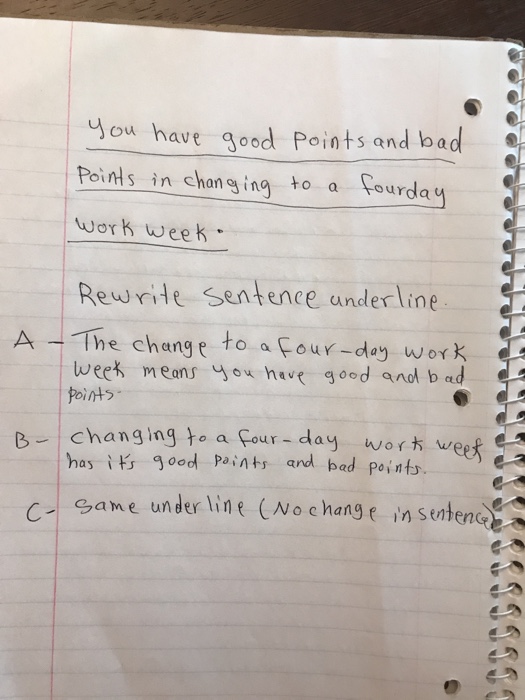 You have good points and bad
Points in changing to a fourday
work week.
Rewrite sentence underline.
A - The change to a four-day work
week means you have good and bad
points.
B- changing to a four-day work week
has it's good points and bad points.
C- same underline (No change in sentence)